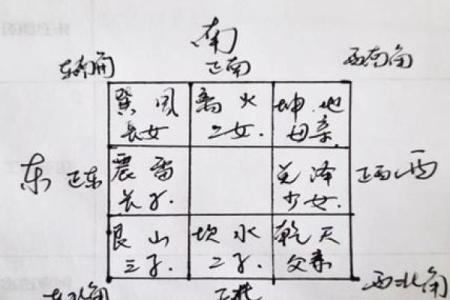 南
东南角 正南 西南角
巽 风 离 火 坤 地
长女 二女. 母亲.
东 正东 震 雷 兑 泽 正西 西
长子. 少女.
艮 山 坎 水 乾 天
三子. 二子. 父亲
东北角 正北 西北角